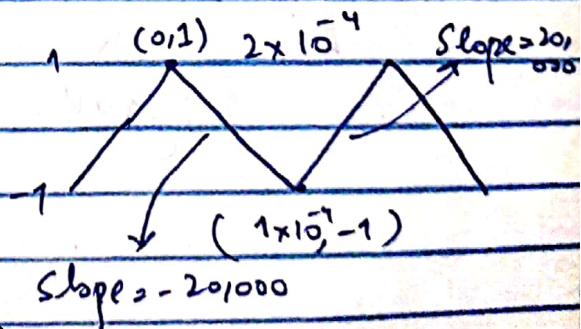 (0,1) 2×10⁻⁴ Slope=20,
000
1
-1
(1×10⁻⁴,-1)
Slope=-20,000